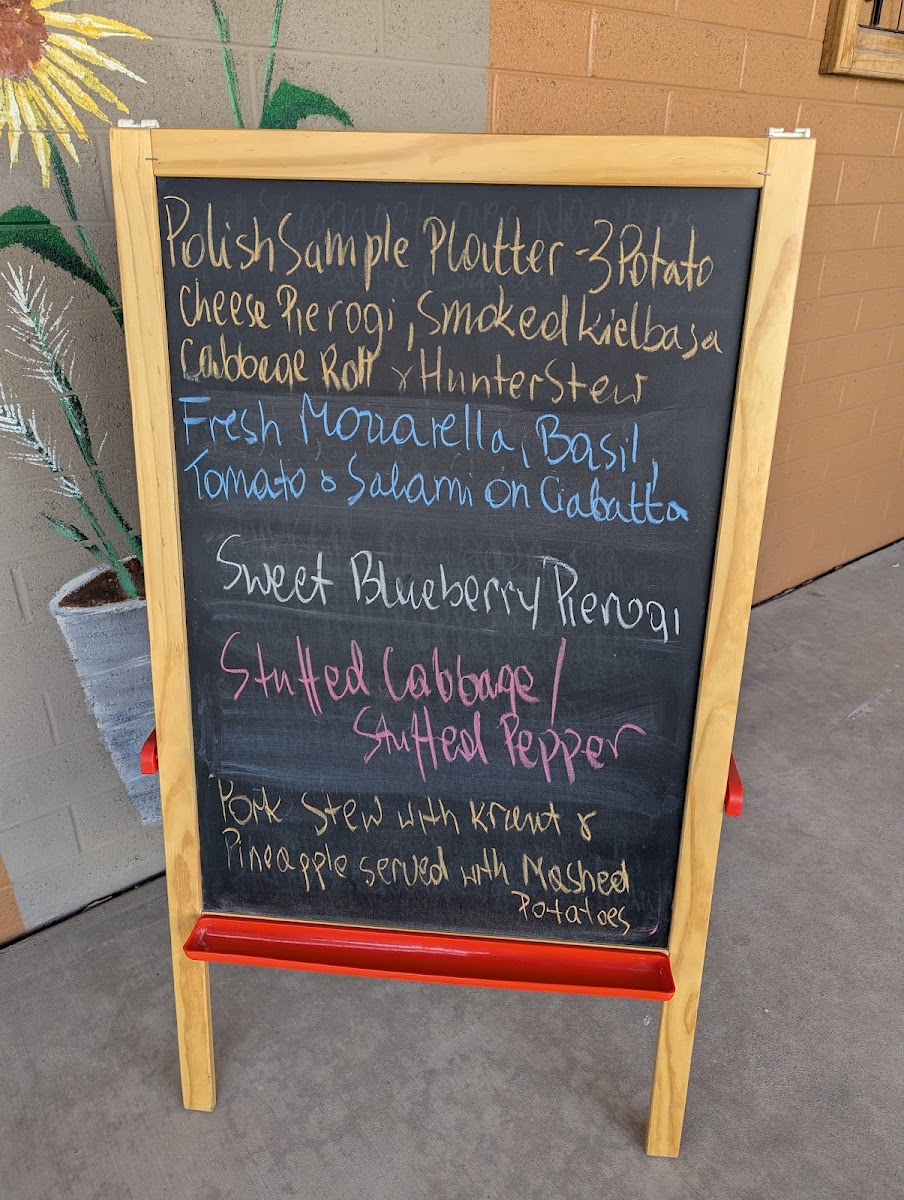 Polish Sample Platter - 3 Potato
Cheese Pierogi, Smoked Kielbasa
Cabbage Roll & Hunter Stew
Fresh Mozzarella, Basil,
Tomato & Salami on Ciabatta
Sweet Blueberry Pierogi
Stuffed Cabbage/
Stuffed Pepper
Pork Stew with Kraut &
Pineapple served with Mashed
Potatoes